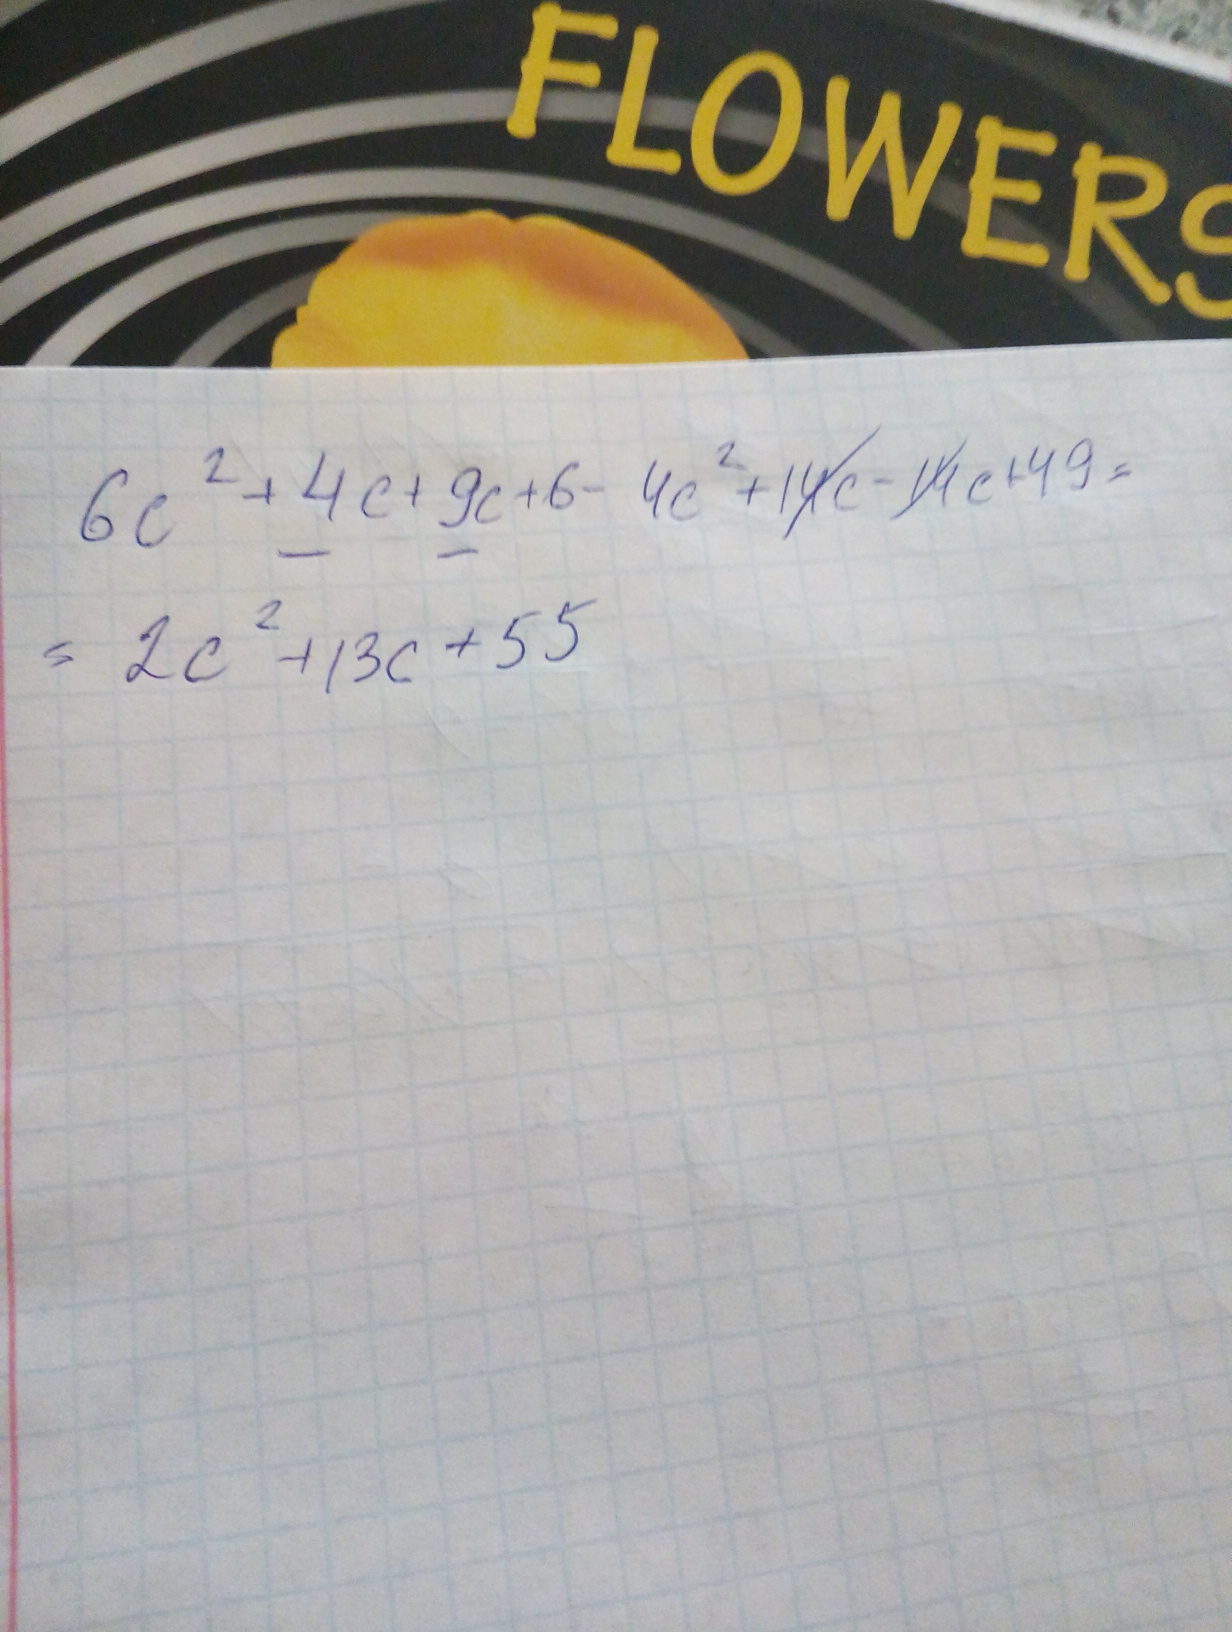 FLOWERS
6c² + 4c + 9c + 6 - 4c² + 14c - 14c + 49 =
= 2c² + 13c + 55